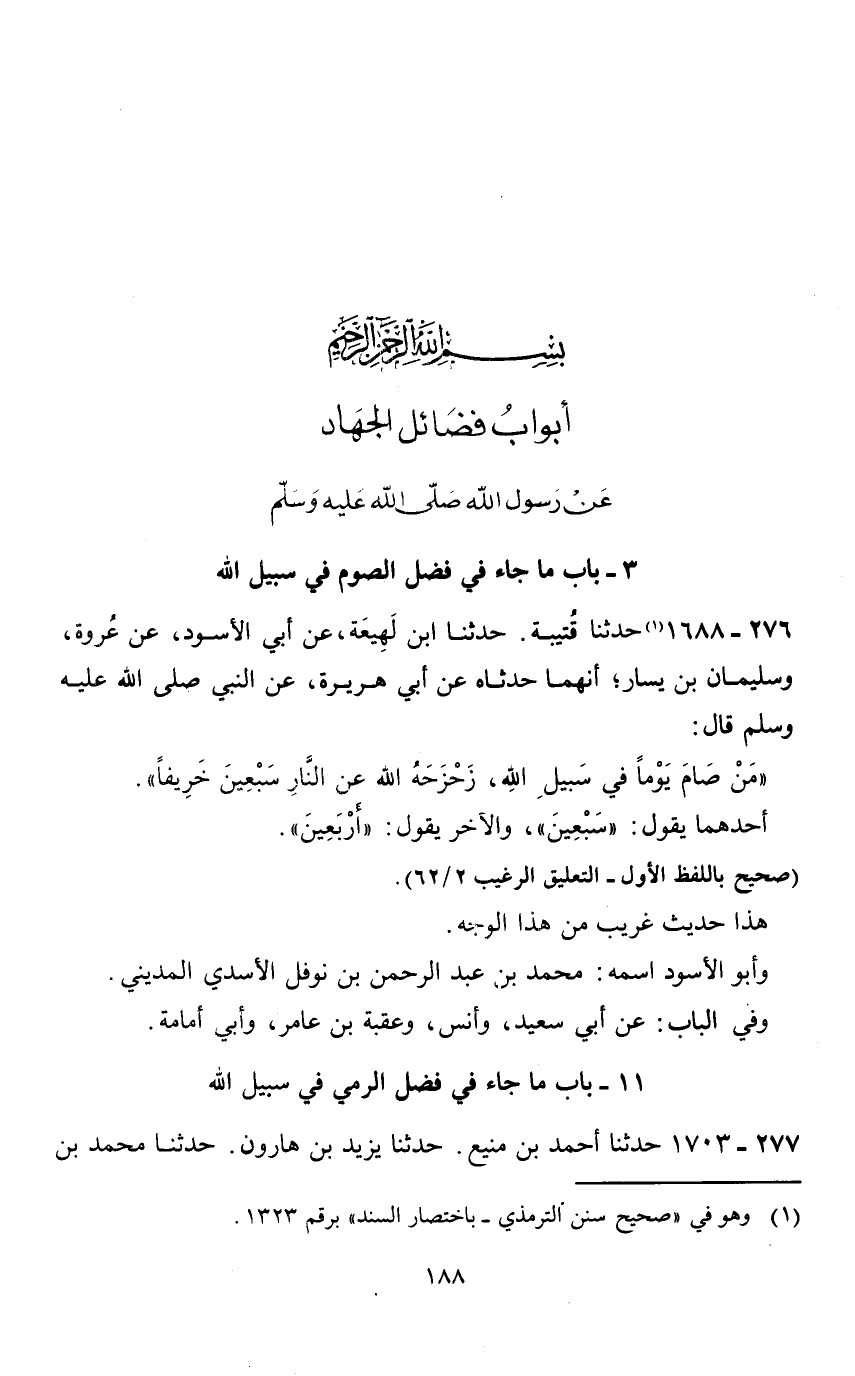 بسم الله الرحمن الرحيم
أبوابُ فضَائل الجهَاد
عَن رَسول الله صَلّى الله عَليه وَسَلّم
٣ ـ باب ما جاء في فضل الصوم في سبيل الله
٢٧٦ ـ ١٦٨٨(١) حدثنا قُتيبة. حدثنا ابن لَهِيعَة، عن أبي الأسود، عن عُروة،
وسليمان بن يسار؛ أنهما حدثاه عن أبي هريرة، عن النبي صلى الله عليه
وسلم قال:
«مَنْ صَامَ يَوْماً في سَبيلِ اللهِ، زَحْزَحَهُ الله عن النَّارِ سَبْعِينَ خَرِيفاً».
أحدهما يقول: «سَبْعِينَ»، والآخر يقول: «أَرْبَعِينَ».
(صحيح باللفظ الأول ـ التعليق الرغيب ٦٢/٢).
هذا حديث غريب من هذا الوجه.
وأبو الأسود اسمه: محمد بن عبد الرحمن بن نوفل الأسدي المديني.
وفي الباب: عن أبي سعيد، وأنس، وعقبة بن عامر، وأبي أمامة.
١١ ـ باب ما جاء في فضل الرمي في سبيل الله
٢٧٧ ـ ١٧٠٣ حدثنا أحمد بن منيع. حدثنا يزيد بن هارون. حدثنا محمد بن
(١) وهو في «صحيح سنن الترمذي ـ باختصار السند» برقم ١٣٢٣.
١٨٨